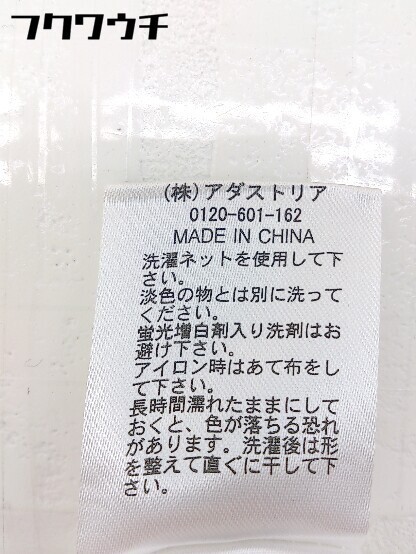 フクワウチ
(株)アダストリア
0120-601-162
MADE IN CHINA
洗濯ネットを使用して下
さい。
淡色の物とは別に洗って
ください。
蛍光増白剤入り洗剤はお
避け下さい。
アイロン時はあて布をし
て下さい。
長時間濡れたままにして
おくと、色が落ちる恐れ
があります。洗濯後は形
を整えて直ぐに干して下
さい。